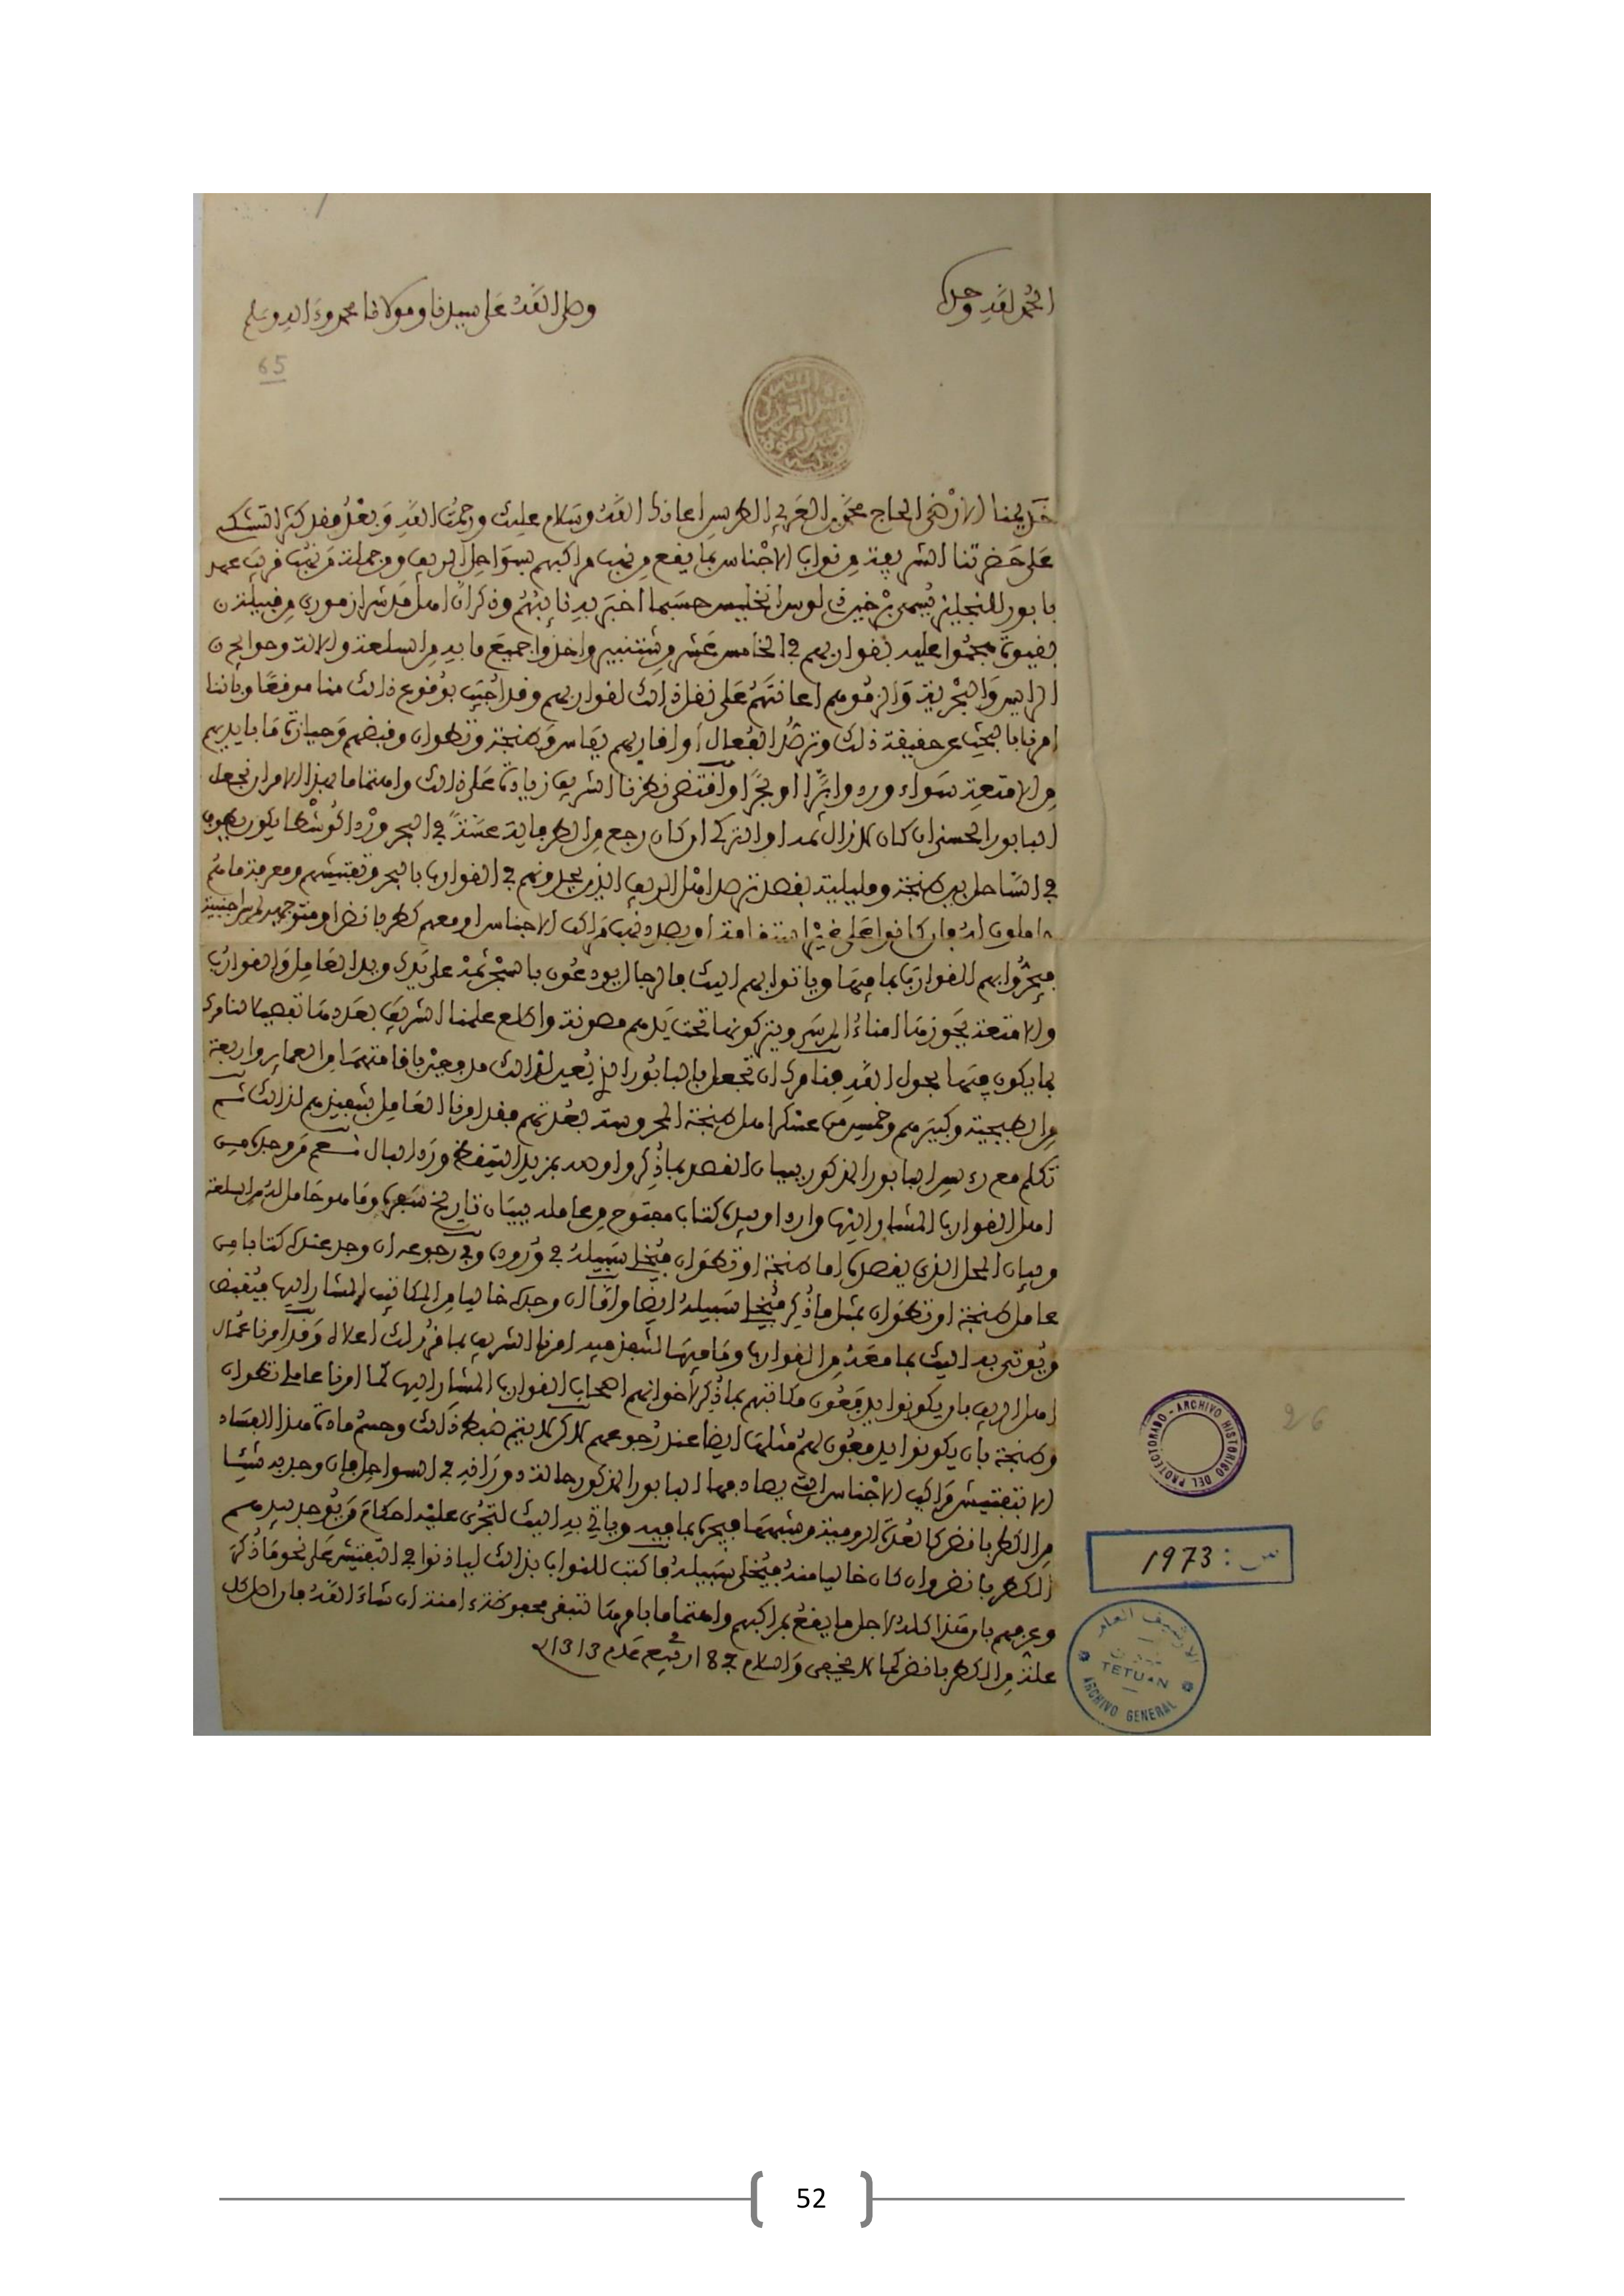 الحمد لله وحده
وصلى الله على سيدنا ومولانا محمد وءاله وسلم
65
خديمنا الارضى الحاج محمد بن العربي الطريس اعانك الله وسلام عليك ورحمت الله وبعد فقد كثر التشكي
على حضرتنا الشريفة من نواب الاجناس بما يقع من نهب مراكبهم بسواحل الريف ومن جملته من نهب قريب عهد
بابور للنجليز يسمى لوس انخليس حسبما اخبر به نائبهم وذكر ان اهل من قبيلة
بقيوة هجموا عليه بقواربهم في الخامس عشر من شتنبر واخذوا جميع ما به من السلعة والالة وحوائج
الرايس والبحرية والزموهم اعانتهم على نقل ذلك لقواربهم وقد اجيب بوقوع ذلك منا موقعا وباننا
امرنا بالبحث عن حقيقة ذلك وترصد الفعال او اقاربهم بفاس وطنجة وتطوان وقبضهم وحيازة ما بايديهم
من الامتعة سواء وردوا برا او بحرا واقتضى نظرنا الشريف زيادة على ذلك واهتماما بهذا الامر ان نجعل
البابور الحسني ان كان لازال ثمه او التركي ان كان رجع من الطرفاية عسة في البحر
في الساحل بين طنجة ومليلية بقصد ترصد اهل الريف الذين يجدونهم في القوارب بالبحر وتفتيشهم ومعرفة ما هم
حاملون له فان كانوا على غير استقامة او بصدد نهب مراكب الاجناس او معهم كطربانض او متوجهين لمرسى اجنبية
فيجروا بهم القوارب بما فيها وياتوا بهم اليك فالرجال يودعون بالسجن ثمة على يدك ويد العامل والقوارب
والامتعة يجوزها امناء المرسى ويتركونها تحت يدهم مصونة واطلع علمنا الشريف بعددها تفصيلا لنامرك
بما يكون فيها بحول الله فنامرك ان تجعل بالبابور الذي يعين لذلك
من الطبجية وكبيرهم وخمسين من عسكر اهل طنجة المحروسة بعدتهم فقد امرنا العامل بتنفيذهم لذلك ثم
تكلم مع رءيس البابور المذكور ببيان القصد بما ذكر واوصه بمزيد التيقظ ورد البال نعم من وجده من
اهل القوارب المشار اليها واردا وبيده كتاب مفتوح من عامله ببيان تاريخ سفره وما هو حامل له من السلعة
وبيان المحل الذي يقصده اما طنجة او تطوان فيخلي سبيله في وروده وفي رجوعه ان وجد عنده كتابا من
عامل طنجة او تطوان بمثل ما ذكر فيخلي سبيله ايضا واما ان وجده خاليا من المكاتيب المشار اليها فيقبض
ويوتى به اليك بما معه من القوارب وما فيها لتنفذ فيه امرنا الشريف بما قرر لك اعلاه وقد امرنا عمال
اهل الريف بان يكونوا يدفعون مكاتبهم بما ذكر لاخوانهم اصحاب القوارب المشار اليها كما امرنا عاملي تطوان
وطنجة بان يكونوا يدفعون لهم مثلها ايضا عند رجوعهم لاكن لا يتم ضبط ذلك وحسم مادة هذا الفساد
الا بتفتيش مراكب الاجناس التي يصادفها البابور المذكور حالة دورانه في السواحل فان وجد به شيئا
من الكطربانض كالعدة الرومية وشبهها فيجره بما فيه وياتي به اليك لتجرى عليه احكام من يوجد بيدهم
الكطربانض وان كان خاليا منه فيخلي سبيله فاكتب للنواب بذلك لياذنوا في التفتيش على نحو ما ذكر
وعرفهم بان هذا كله لاجل ما يقع بمراكبهم واهتماما بامرها لتبقى محفوظة ءامنة ان شاء الله فان اصل كل
علة من الكطربانض كما لا يخفى والسلام في 18 ربيع عام 1313
26
ARCHIVO HISTORICO DEL PROTECTORADO
س : 1973
الارشيف العام
تطوان
TETUAN
ARCHIVO GENERAL
52